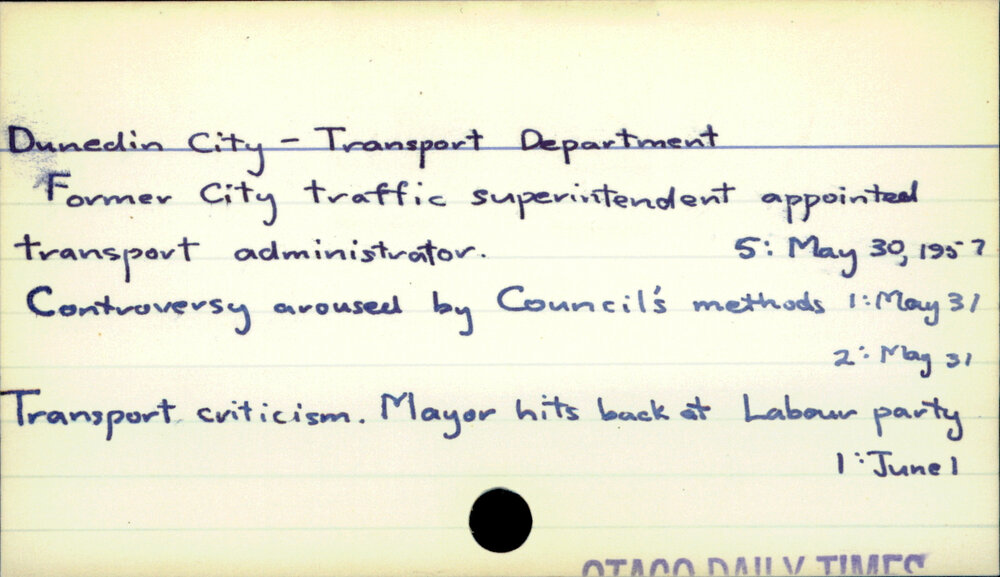 Dunedin City - Transport Department
Former City traffic superintendent appointed
transport administrator. 5: May 30, 1957
Controversy aroused by Council's methods 1: May 31
2: May 31
Transport criticism. Mayor hits back at Labour party
1: June 1
OTAGO DAILY TIMES